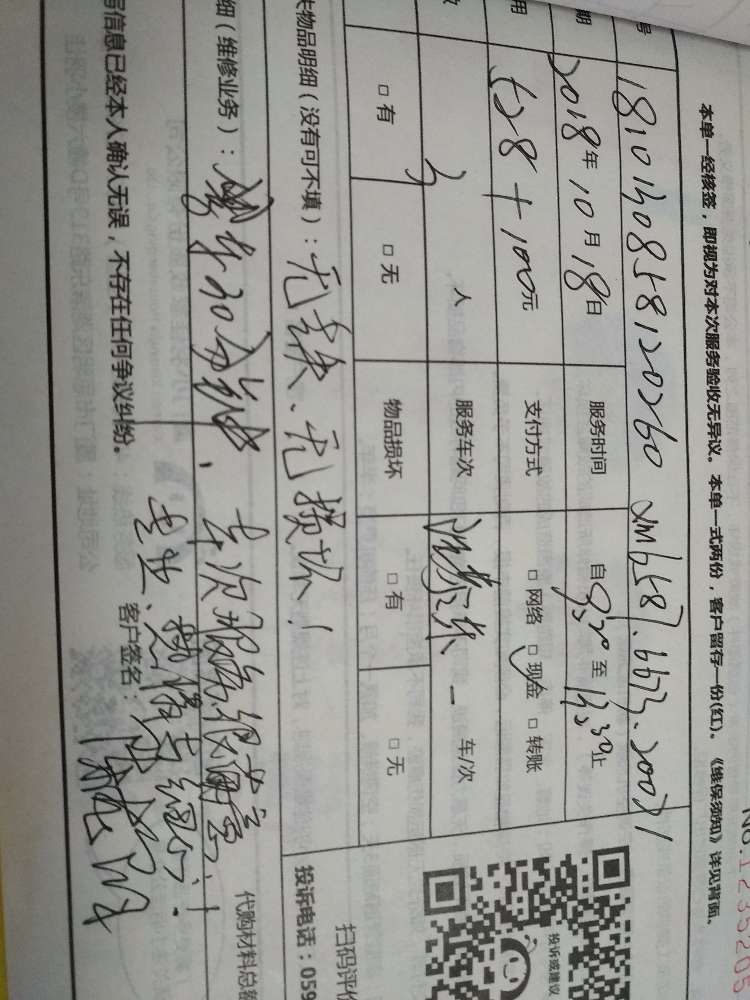 No.1235205
本单一经核签，即视为对本次服务验收无异议。本单一式两份，客户留存一份(红)。《维保须知》详见背面。
号 1810130858120260
期 2018年10月18日 服务时间 自9:30至13:30止
用 528+100元 支付方式 □网络 □现金 □转账
3人 服务车次 一车/次
□有 □无 物品损坏 □有 □无
失物品明细（没有可不填）：无缺、无损坏！
细（维修业务）：
本次服务很满意！
专业、热情
写信息已经本人确认无误，不存在任何争议纠纷。
客户签名：
投诉或建议
扫码评价
投诉电话：059
代购材料总额